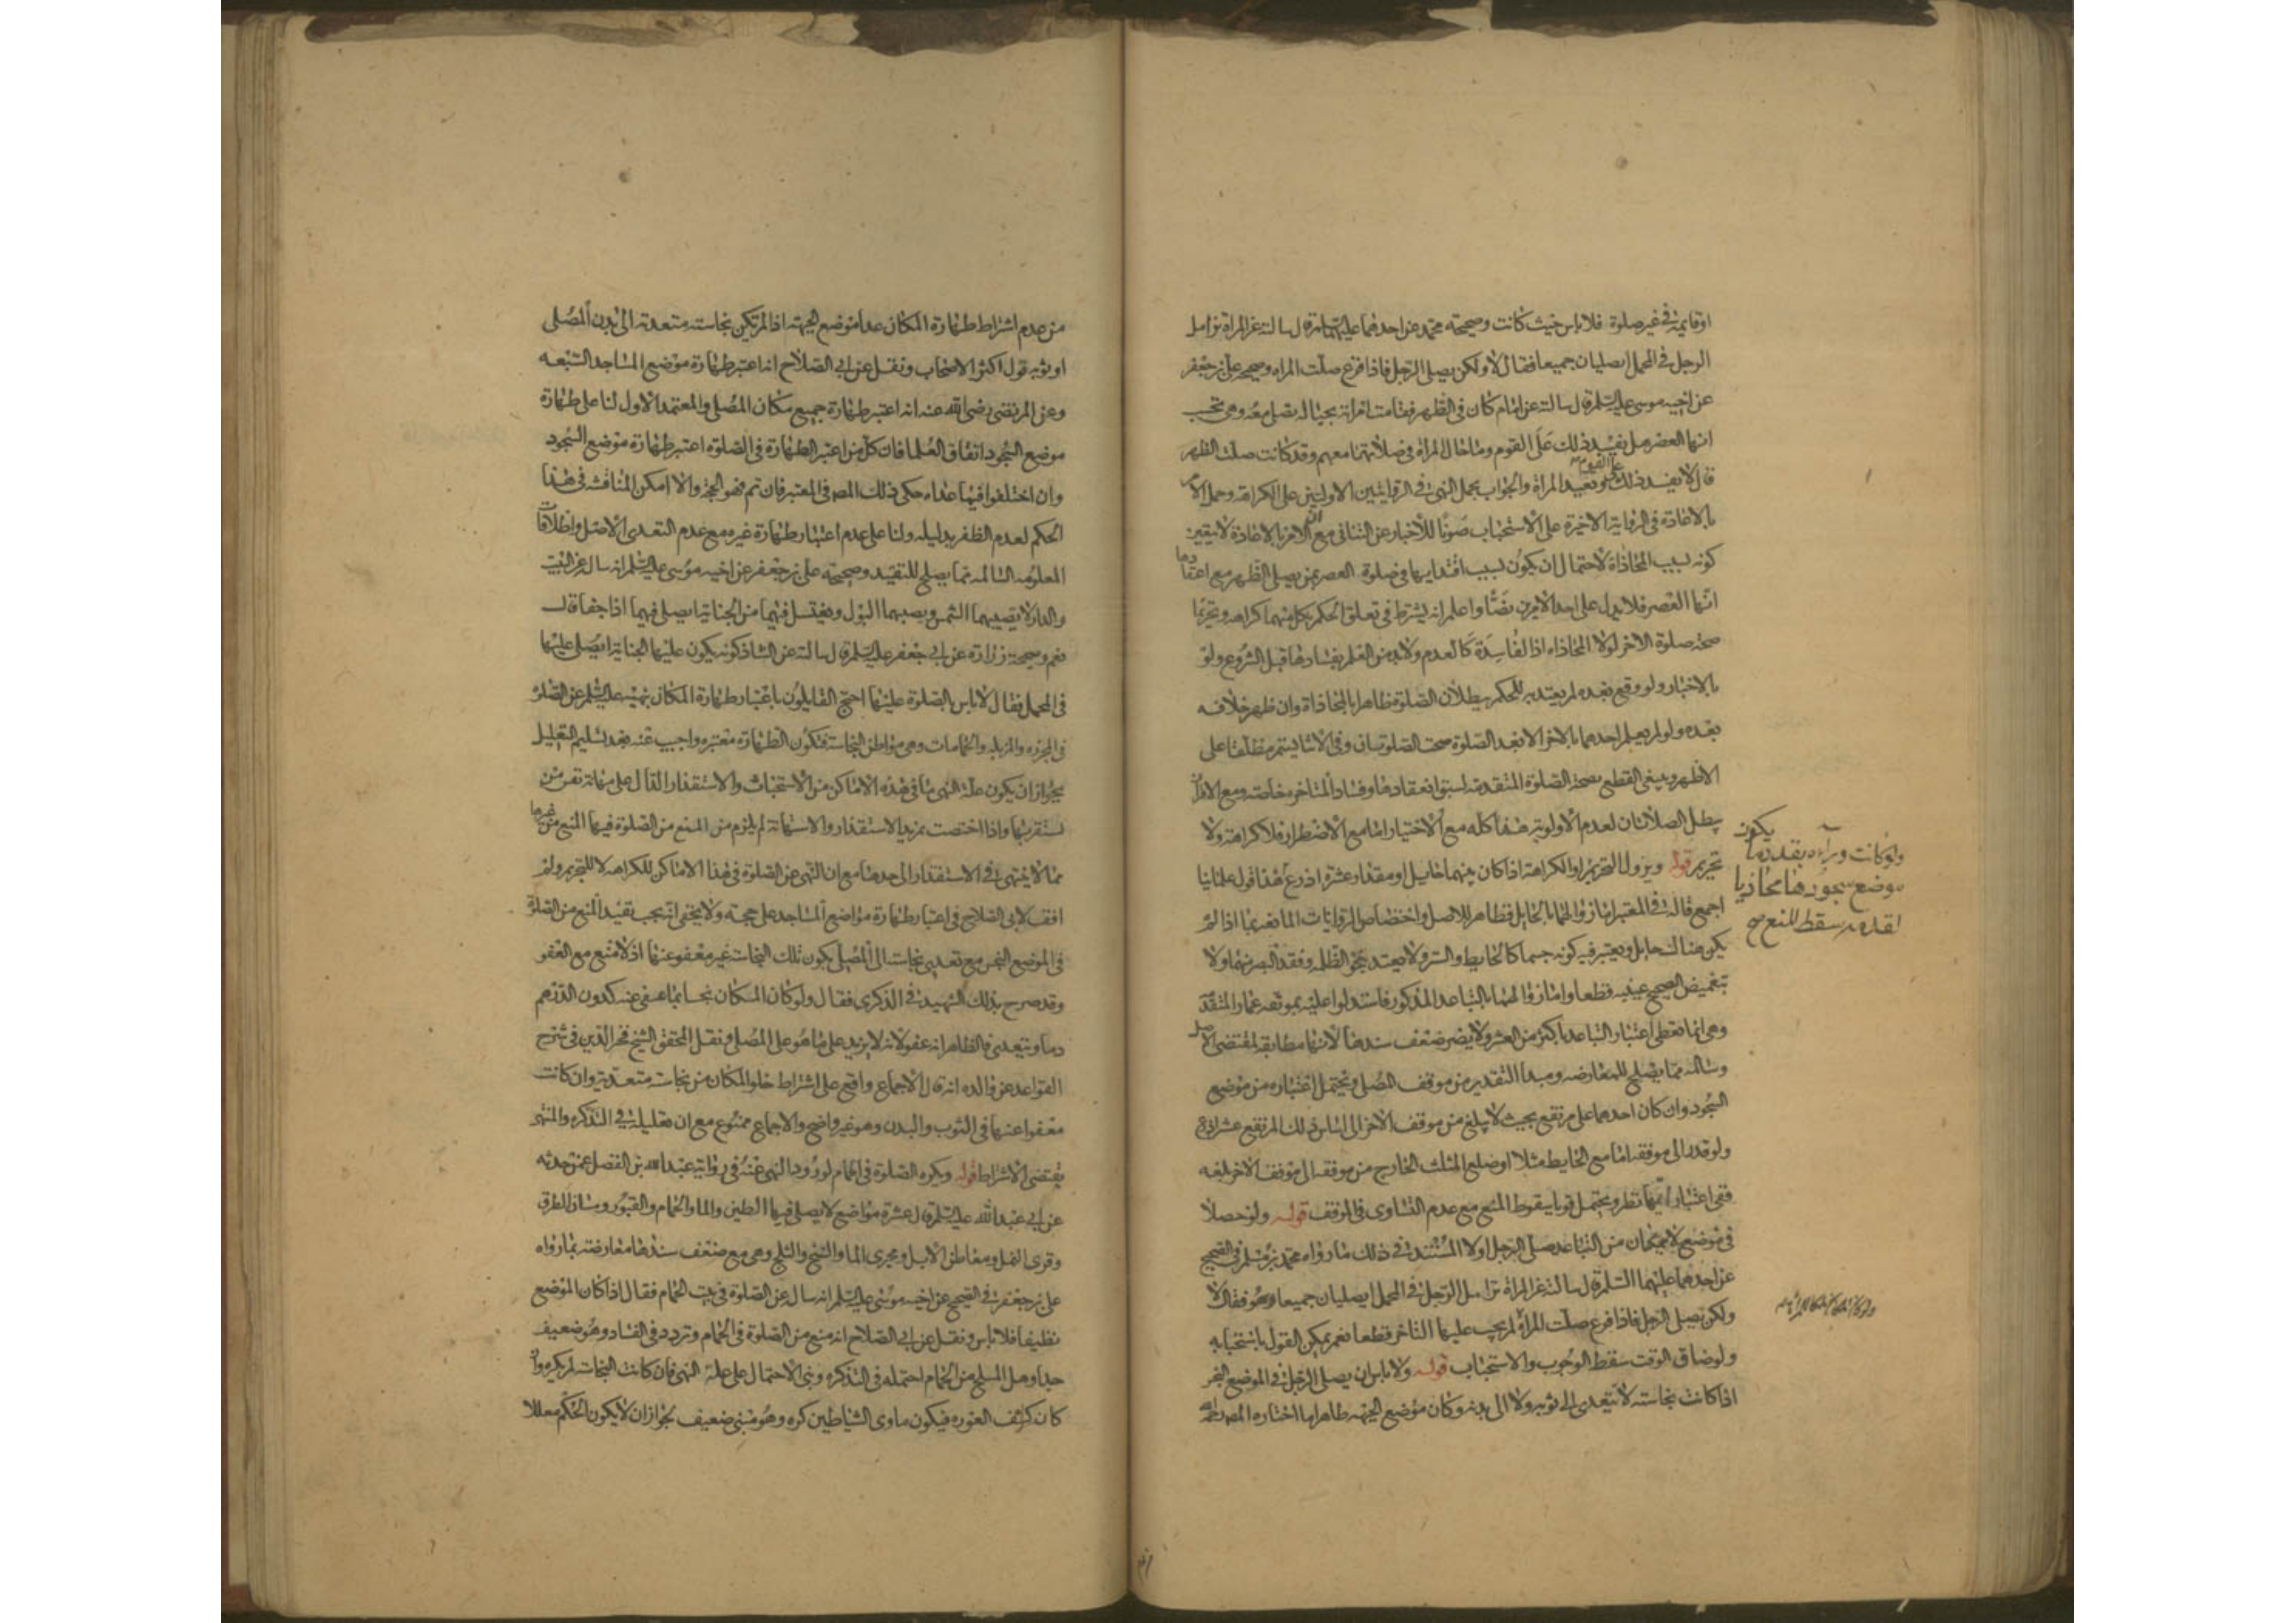 او قايمة في غير صلوة فلا باس حيث كانت وصحيحة محمد عن احدهما عليهما السلم قال سالته عن المراة تزامل
الرجل في المحمل يصليان جميعا فقال لا ولكن يصلي الرجل فاذا فرغ صلت المراه وصحيحة علي بن جعفر
عن اخيه موسى عليه السلم قال سالته عن امام كان في الظهر فقامت امراته بحياله تصلي معه وهي تحسب
انها العصر هل يفسد ذلك على القوم وما حال المراة في صلاتها معهم وقد كانت صلت الظهر
قال لا يفسد ذلك على القوم وتعيد المراة والجواب بحمل النهي في الروايتين الاوليين على الكراهة وحمل الامر
بالاعادة في الرواية الاخيرة على الاستحباب صونا للاخبار عن التنافي مع ان الامر بالاعادة لا يتعين
كونه بسبب المحاذاة لاحتمال ان يكون بسبب اقتدايها في صلوة العصر بمن يصلي الظهر مع اعتقادها
انها العصر فلا يدل على احد الامرين نصا واعلم انه يشترط في تعلق الحكم بكل منهما كراهة وتحريما
صحة صلوة الاخر لولا المحاذاه اذ الفاسدة كالعدم ولا بد من العلم بفسادها قبل الشروع ولو
بالاخبار ولو وقع بعده لم يعتد به للحكم ببطلان الصلوة ظاهرا بالمحاذاة وان ظهر خلافه
بعده ولو لم يعلم احدهما بالاخر الا بعد الصلوة صحت الصلوتان وفي الاثنا يستمر مطلقا على
الاظهر وينبغي القطع بصحة الصلوة المتقدمة لسبق انعقادها وفساد المتاخر خاصة ومع الاقتران
يبطل الصلاتان لعدم الاولوية هذا كله مع الاختيار اما مع الاضطرار فلا كراهة ولا
تحريم قوله ويزول التحريم او الكراهة اذا كان بينهما حايل او مقدار عشرة اذرع هذا قول علمائنا
اجمع قاله في المعتبر اما زوالها بالحايل فظاهر للاصل واختصاص الروايات المانعة بما اذا لم
يكن هناك حايل ويعتبر فيه كونه جسما كالحايط والستر ولا يعتد بنحو الظلمة وفقد البصر منهما ولا
بتغميض الصحيح عينيه قطعا واما زوالهما بالتباعد المذكور فاستدلوا عليه بموثقة عمار المتقدمة
وهي انما تعطي اعتبار التباعد باكثر من العشر ولا يضر ضعف سندها لانها مطابقة لمقتضى الاصل
وسالمة مما يصلح للمعارضة ومبدا التقدير من موقف المصلي ويحتمل اعتباره من موضع
السجود وان كان احدهما على مرتفع بحيث لا يبلغ من موقف الاخر الى اساس ذلك المرتفع عشر اذرع
ولو قدر الى موقفه اما مع الحايط مثلا او ضلع المثلث الخارج من موقفه الى موقف الاخر بلغه
ففي اعتبار ايهما نظر ويحتمل قويا سقوط المنع مع عدم التساوى في الموقف قوله ولو حصلا
في موضع لا يتمكنان من التباعد صلى الرجل اولا المستند في ذلك ما رواه محمد بن مسلم في الصحيح
عن احدهما عليهما السلم قال سالته عن المراة تزامل الرجل في المحمل ايصليان جميعا فقال لا
ولكن يصلي الرجل فاذا فرغ صلت المراة ولم يجب عليها التاخر قطعا نعم يمكن القول باستحبابه
ولو ضاق الوقت سقط الوجوب والاستحباب قوله ولا باس ان يصلي الرجل في الموضع النجس
اذا كانت نجاسته لا تتعدى الى ثوبه ولا الى بدنه وكان موضع الجبهه طاهرا ما اختاره المصنف
ولو كانت وراءه بقدر ما يكون
موضع سجودها محاذيا
لقدمه سقط المنع صح
من عدم اشتراط طهارة المكان عدا موضع الجبهة اذا لم تكن نجاسته متعدية الى بدن المصلي
او ثوبه قول اكثر الاصحاب ونقل عن ابي الصلاح انه اعتبر طهارة موضع المساجد السبعه
وعن المرتضى رضي الله عنه انه اعتبر طهارة جميع مكان المصلي والمعتمد الاول لنا على طهارة
موضع السجود اتفاق العلما فان كل من اعتبر الطهارة في الصلوة اعتبر طهارة موضع السجود
وان اختلفوا فيما عداه حكى ذلك المص في المعتبر فان تم فهو الحجة والا امكن المناقشه في هذا
الحكم لعدم الظفر بدليله ولنا على عدم اعتبار طهارة غيره مع عدم التعدى الاصل واطلاقات
المعلومه السالمه مما يصلح للتقييد وصحيحة علي بن جعفر عن اخيه موسى عليه السلم انه سال عن البيت
والدار لا تصيبهما الشمس ويصيبهما البول ويغتسل فيهما من الجنابة ايصلى فيهما اذا جفا قال
نعم وصحيحة زرارة عن ابي جعفر عليه السلم قال سالته عن الشاذكونة يكون عليها الجنابة ايصلى عليها
في المحمل فقال لا باس بالصلوة عليها احتج القايلون باعتبار طهارة المكان بنهيه عليه السلم عن الصلوة
في المجزرة والمزبلة والحمامات وهي مواطن النجاسة فتكون الطهارة معتبره واجيب عنه بعد تسليم التعليل
بجواز ان يكون علة النهي ما في هذه الاماكن من الاستخباث والاستقذار الدال على مهانة نفس من
يستقر بها واذا اختصت بمزيد الاستقذار والاستهانة لم يلزم من المنع من الصلوة فيها المنع من غيرها
مما لا ينتهي في الاستقذار الى حدها مع ان النهي عن الصلوة في هذا الاماكن للكراهة لا للتحريم ولم
اقف لابي الصلاح في اعتبار طهارة مواضع المساجد على حجة ولا يخفى انه يجب تقييد المنع من الصلوة
في الموضع النجس مع تعدي نجاسته الى المصلي بكون تلك النجاسة غير معفو عنها اذ لا منع مع العفو
وقد صرح بذلك الشهيد في الذكرى فقال ولو كان المكان نجسا بما عفي عنه كدون الدرهم
دما ويتعدى فالظاهر انه عفو لانه لا يزيد على ما هو على المصلي ونقل المحقق الشيخ فخر الدين في شرح
القواعد عن والده انه قال الاجماع واقع على اشتراط خلو المكان من نجاسة متعدية وان كانت
معفوا عنها في الثوب والبدن وهو غير واضح والاجماع ممنوع مع ان تعليله في التذكره والمنتهى
يقتضي الاشتراط قوله ويكره الصلوة في الحمام لورود النهي عنه في رواية عبد الله بن الفضل عمن حدثه
عن ابي عبد الله عليه السلم قال عشرة مواضع لا يصلي فيها الطين والماء والحمام والقبور ومسان الطرق
وقرى النمل ومعاطن الابل ومجرى الماء والسبخ والثلج وهي مع ضعف سندها معارضة بما رواه
علي بن جعفر في الصحيح عن اخيه موسى عليه السلم انه ساله عن الصلوة في بيت الحمام فقال اذا كان الموضع
نظيفا فلا باس ونقل عن ابي الصلاح انه منع من الصلوة في الحمام وتردد في الفساد وهو ضعيف
جدا وهل المسلخ من الحمام احتمله في التذكره وبنى الاحتمال على علة النهي فان كانت النجاسة لم يكره وان
كان كشف العوره فيكون ماوى الشياطين كره وهو مبنى ضعيف لجواز ان لا يكون الحكم معللا